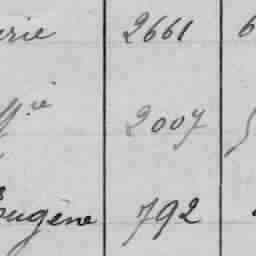 rie 2661 6
gie 2007 5
Eugène 792